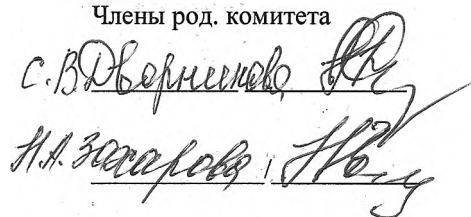 Члены род. комитета
С.В.Дворникова
Н.А. Захарова